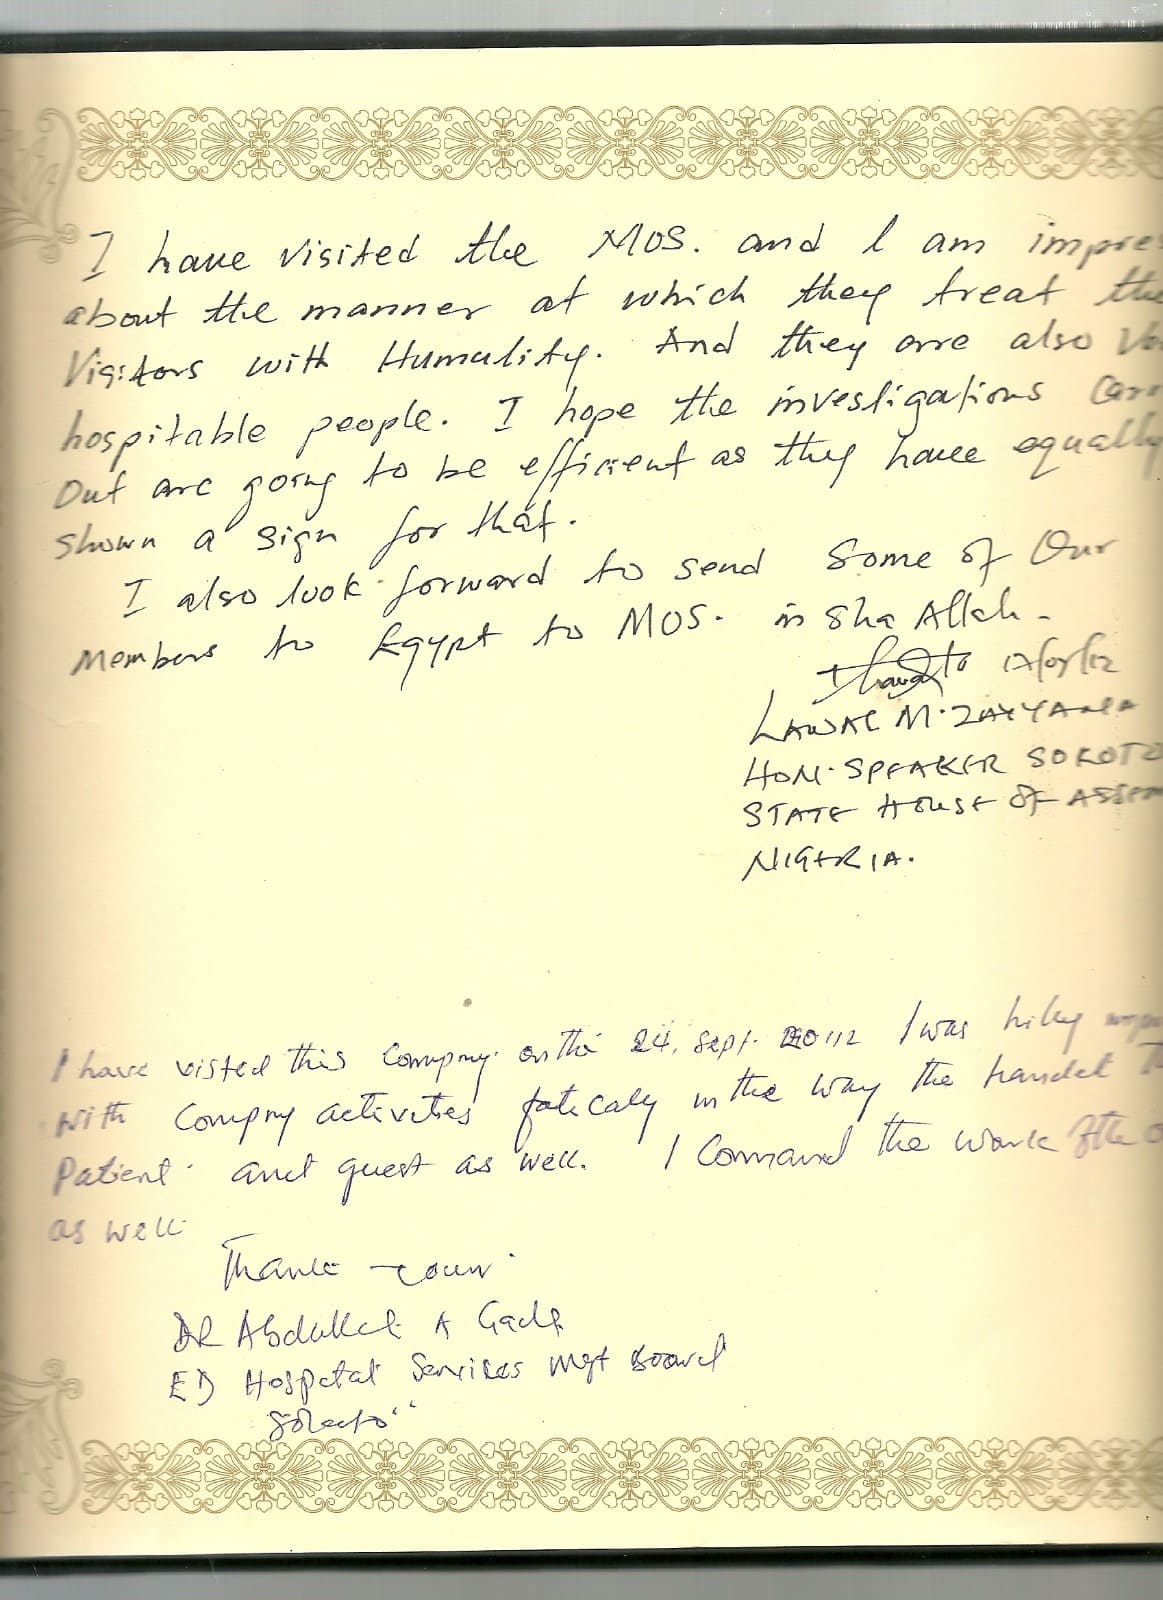 I have visited the MOS. and I am impre
about the manner at which they treat the
Visitors with Humulity. And they are also
hospitable people. I hope the investigations carr
Out are going to be efficient as they have equally
shown a sign for that.
I also look forward to send some of Our
Members to Egypt to MOS. in sha Allah.
LAWAL M. ZAYYANA
HON. SPEAKER SOKOTO
STATE HOUSE OF ASSEM
NIGERIA.
I have visted this Company on the 24. Sept. 2012 I was
with Company activities in the way the
Patient and guest as well. I Command the work
as well
Thank
DR Abdullah A
ED Hospetal Services Mgt Board
Sokoto